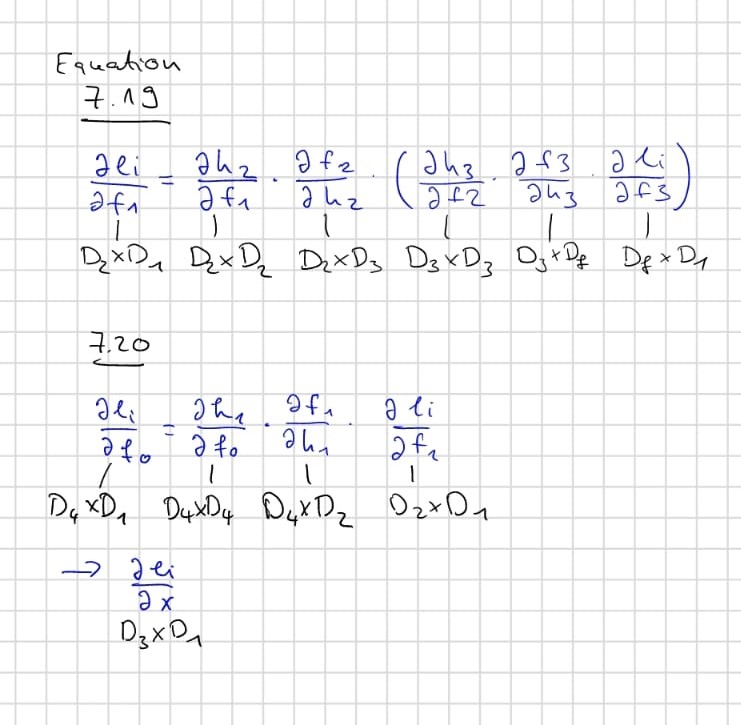 Equation
7.19
∂ℓi/∂f1 = ∂h2/∂f1 · ∂f2/∂h2 · (∂h3/∂f2 · ∂f3/∂h3 · ∂ℓi/∂f3)
D2×D1 D2×D2 D2×D3 D3×D3 D3×Df Df×D1
7.20
∂ℓi/∂f0 = ∂h1/∂f0 · ∂f1/∂h1 · ∂ℓi/∂f1
D4×D1 D4×D4 D4×D2 D2×D1
→ ∂ℓi/∂x
D3×D1